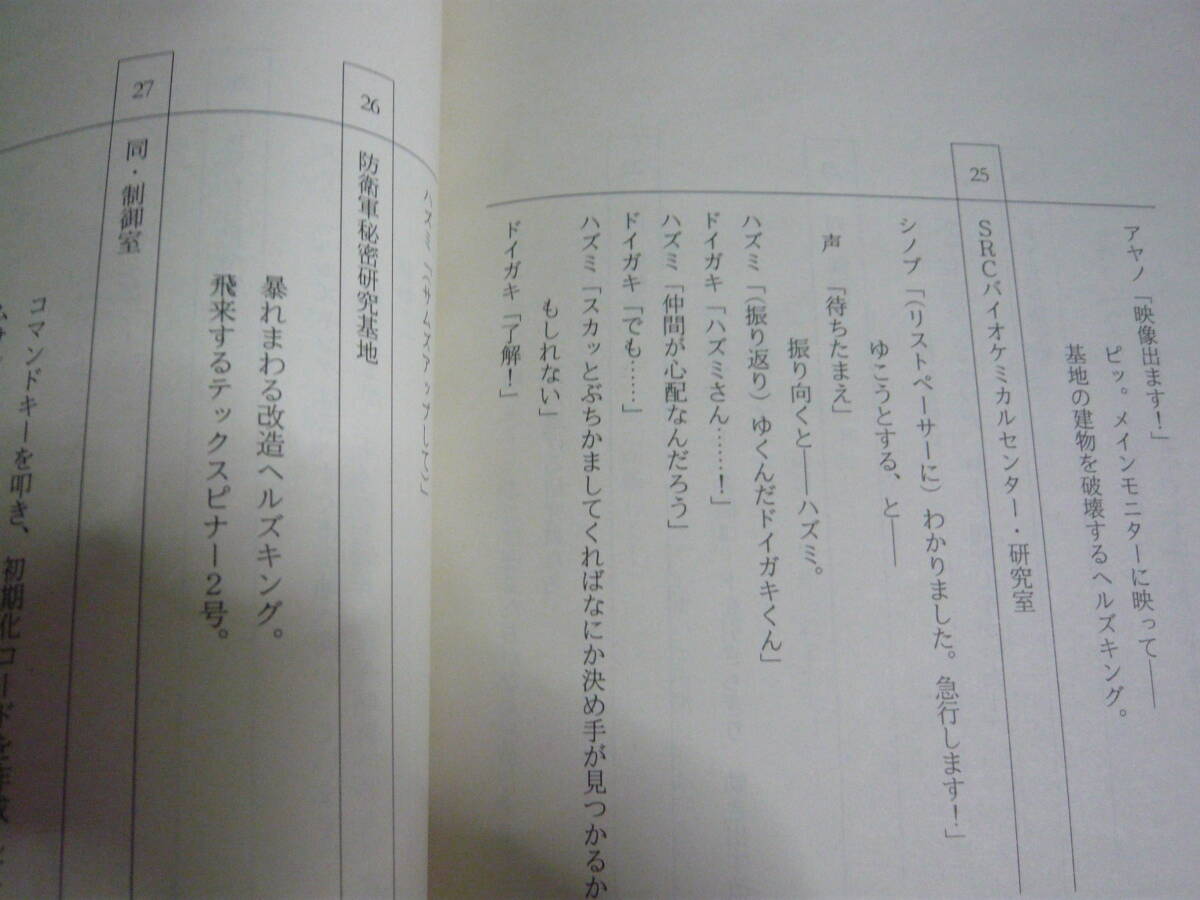 アヤノ「映像出ます!」
ピッ。メインモニターに映って――
基地の建物を破壊するヘルズキング。
25 SRCバイオケミカルセンター・研究室
シノブ「(リストペーサーに)わかりました。急行します!」
ゆこうとする、と――
声「待ちたまえ」
振り向くと――ハズミ。
ハズミ「(振り返り)ゆくんだドイガキくん」
ドイガキ「ハズミさん……!」
ハズミ「仲間が心配なんだろう」
ドイガキ「でも……」
ハズミ「スカッとぶちかましてくればなにか決め手が見つかるか
もしれない」
ドイガキ「了解!」
ハズミ「(サムズアップして)」
26 防衛軍秘密研究基地
暴れまわる改造ヘルズキング。
飛来するテックスピナー2号。
27 同・制御室
コマンドキーを叩き、初期化コードを